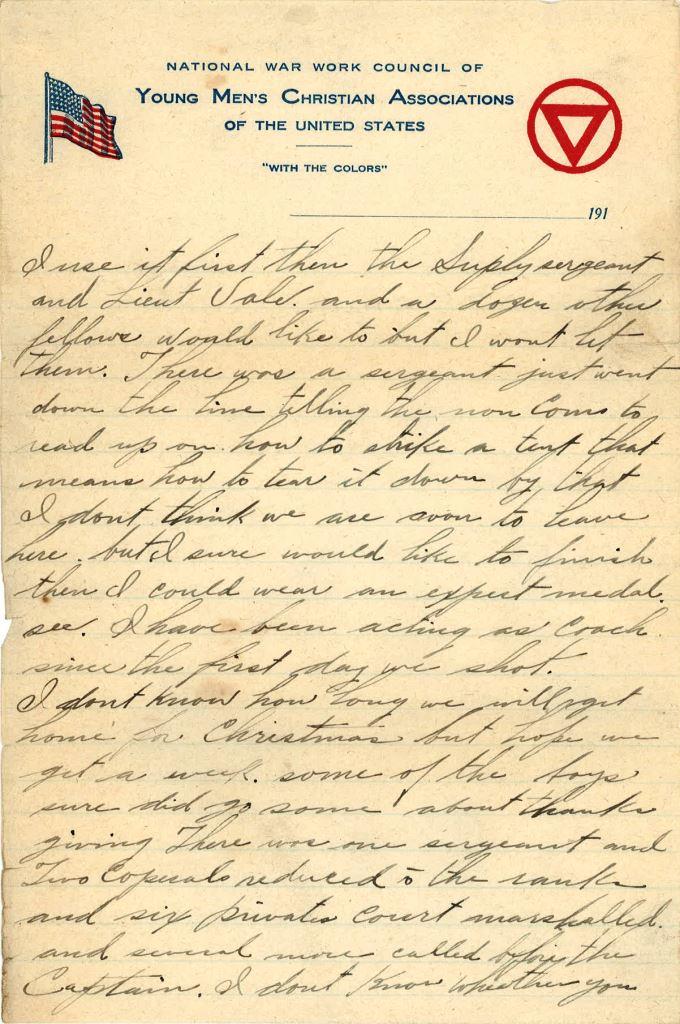 NATIONAL WAR WORK COUNCIL OF
YOUNG MEN'S CHRISTIAN ASSOCIATIONS
OF THE UNITED STATES
"WITH THE COLORS"
191
I use it first then the Suply sergeant
and Lieut Vale. and a dozen other
fellows would like to but I wont let
them. There was a sergeant just went
down the line telling the non Coms to
read up on how to strike a tent that
means how to tear it down by that
I dont think we are soon to leave
here. but I sure would like to finish
then I could wear an expert medal.
see. I have been acting as coach
since the first day we shot.
I dont know how long we will get
home for Christmas but hope we
get a week. some of the boys
sure did go some about thanks
giving There was one sergeant and
Two Coperals reduced to the ranks
and six privates court marshalled.
and several more called before the
Captain. I dont know wheather you